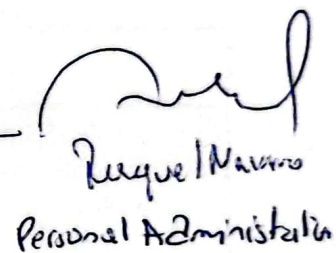 Raquel Navarro
Personal Administration